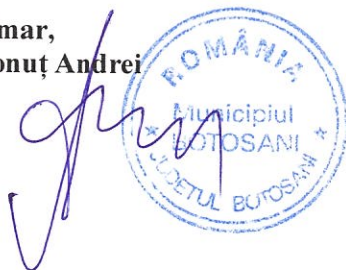 mar,
onuț Andrei
ROMÂNIA
Municipiul
BOTOSANI
* JUDEȚUL BOTOȘANI *